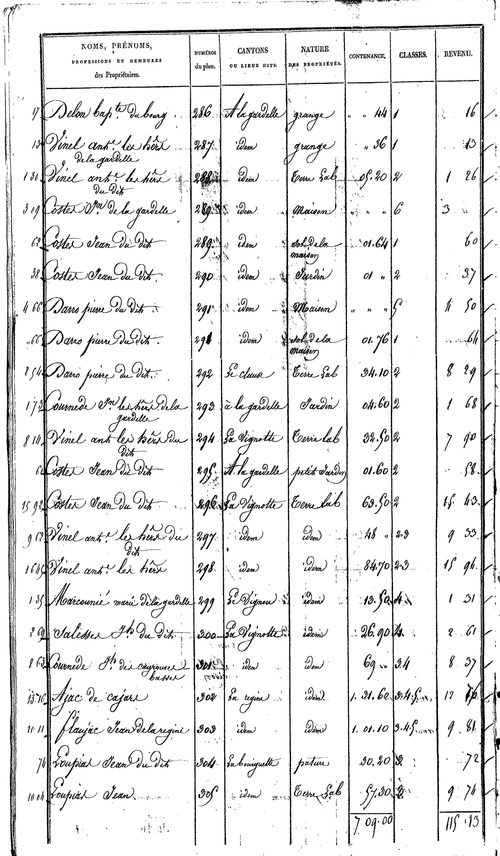 NOMS, PRÉNOMS, PROFESSIONS ET DEMEURES des Propriétaires. NUMÉROS du plan. CANTONS OU LIEUX DITS. NATURE DES PROPRIÉTÉS. CONTENANCE. CLASSES. REVENU.
17 Delon bapte du bourg 286 A la gardelle grange " " 44 1 16
13 Vinel antne les hérs de la gardelle 287 idem grange " 36 1 13
1 30 Vinel antne les hérs du dit 288 idem Terre Lab 05.20 2 1 26
3 09 Costes de la gardelle idem Maison " " " 6 3
Costes Jean du dit 289 idem sol de la maison 01.64 1 60
38 Costes Jean du dit 290 idem Jardin 01 " 2 37
4 66 Darro pierre du dit 291 idem Maison " " " 5 4 50
66 Darro pierre du dit 291 idem sol de la maison 01.76 1 64
8 54 Darro pierre du dit 292 Le claux Terre Lab 34.10 2 8 29
1 73 Cournede les hérs de la gardelle 293 à la gardelle Jardin 04.60 2 1 68
8 14 Vinel ant les hérs du dit 294 La Vignotte Terre lab 32.50 2 7 90
60 Costes Jean du dit 295 A la gardelle petit Jardin 01.60 2 58
15 92 Costes Jean du dit 296 La Vignotte Terre Lab 63.50 2 15 43
9 62 Vinel antne les hérs du dit 297 idem idem 48 " 2.3 9 33
16 45 Vinel antne les hérs 298 idem idem 84.70 2.3 15 96
1 35 Marcounié marie de la gardelle 299 Le Vignou idem 13.50 4 1 31
2 69 Salesses du dit 300 La Vignotte idem 26.90 4 2 61
8 63 Cournede de basses 301 idem idem 69 " 3.4 8 37
Ajac de cajarc 302 La regine idem 1.21.60 3.4.5 12
10 11 flaujac Jean de la regine 303 idem idem 1.01.10 3.4.5 9 81
74 Loupias Jean du dit 304 pature 30.20 2 72
10 06 Loupias Jean 305 idem Terre Lab 57.30 2 9 76
7.09.00 115.13